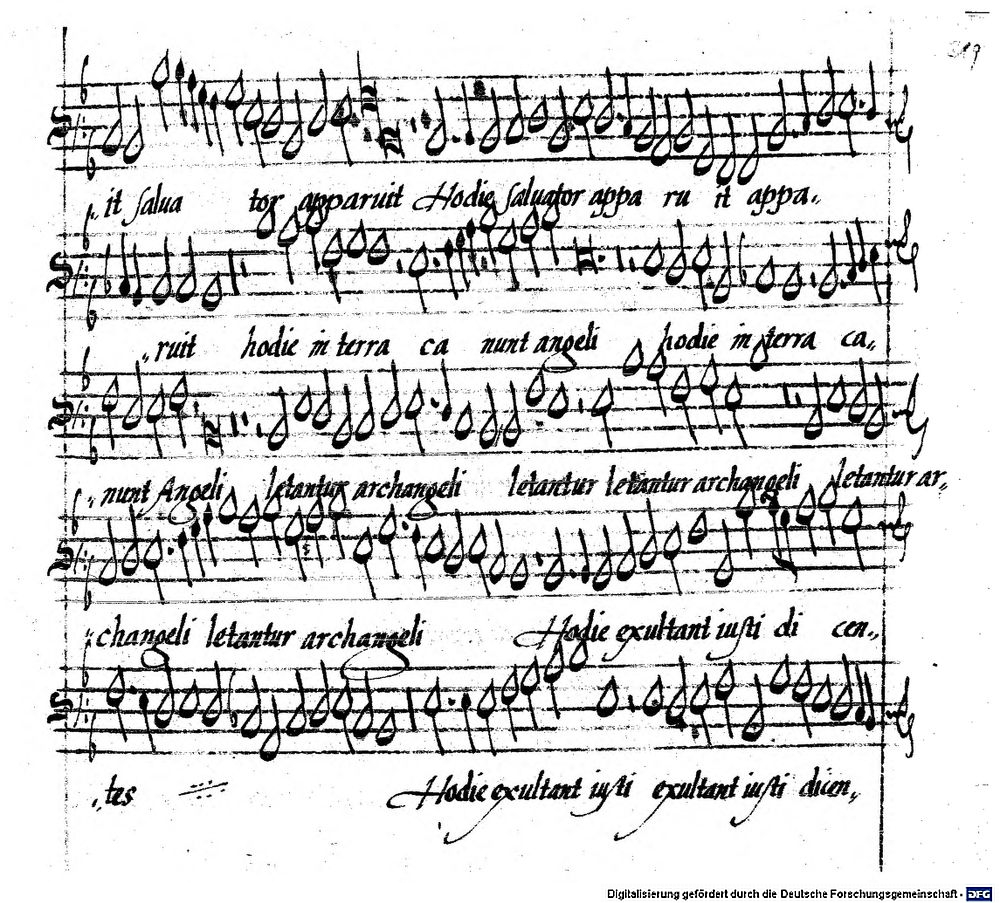 319
„it salua tor apparuit Hodie saluator appa ru it appa„
„ruit hodie in terra ca nunt angeli hodie in terra ca„
„nunt Angeli letantur archangeli letantur letantur archangeli letantur ar„
„changeli letantur archangeli Hodie exultant iusti di cen„
„tes Hodie exultant iusti exultant iusti dicen„
Digitalisierung gefördert durch die Deutsche Forschungsgemeinschaft - DFG